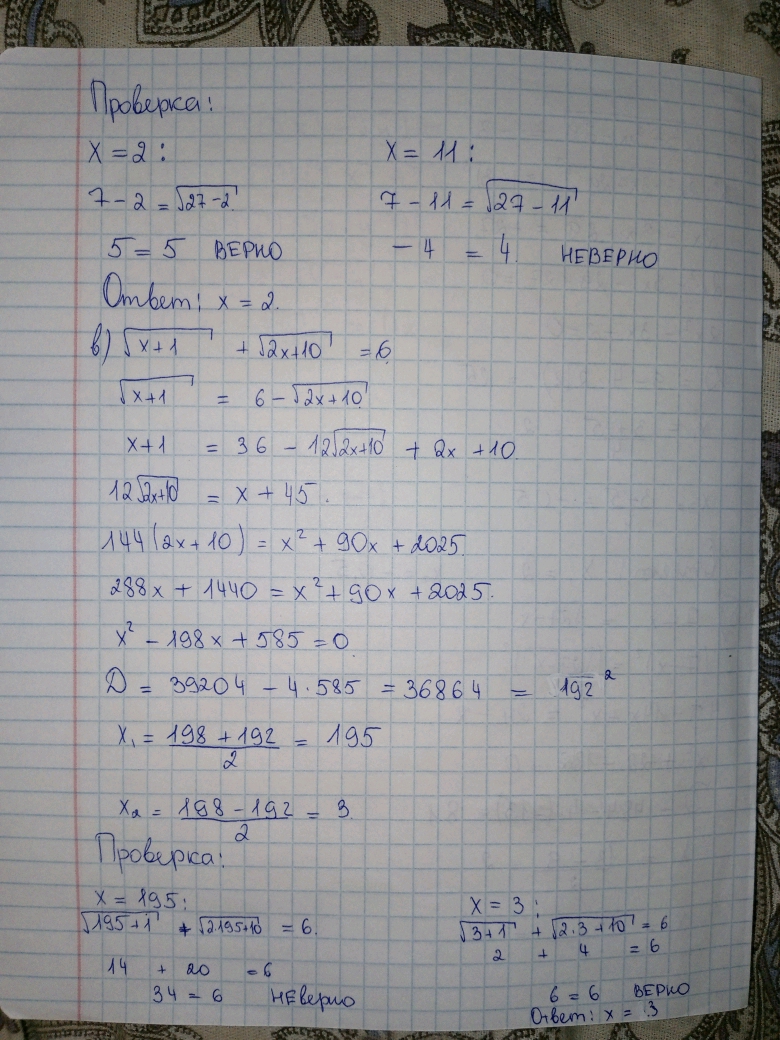 Проверка:
x = 2 : x = 11 :
7 - 2 = √27-2 7 - 11 = √27 - 11
5 = 5 ВЕРНО - 4 = 4. НЕВЕРНО
Ответ: x = 2.
в) √x+1 + √2x+10 = 6
√x+1 = 6 - √2x+10
x+1 = 36 - 12√2x+10 + 2x + 10.
12√2x+10 = x + 45.
144(2x+10) = x² + 90x + 2025.
288x + 1440 = x² + 90x + 2025.
x² - 198x + 585 = 0
D = 39204 - 4·585 = 36864 = 192²
x₁ = (198 + 192)/2 = 195
x₂ = (198 - 192)/2 = 3
Проверка:
x = 195: x = 3 :
√195+1 + √2·195+10 = 6. √3+1 + √2·3+10 = 6
14 + 20 = 6 2 + 4 = 6
34 = 6 НЕверно 6 = 6 ВЕРНО
Ответ: x = 3